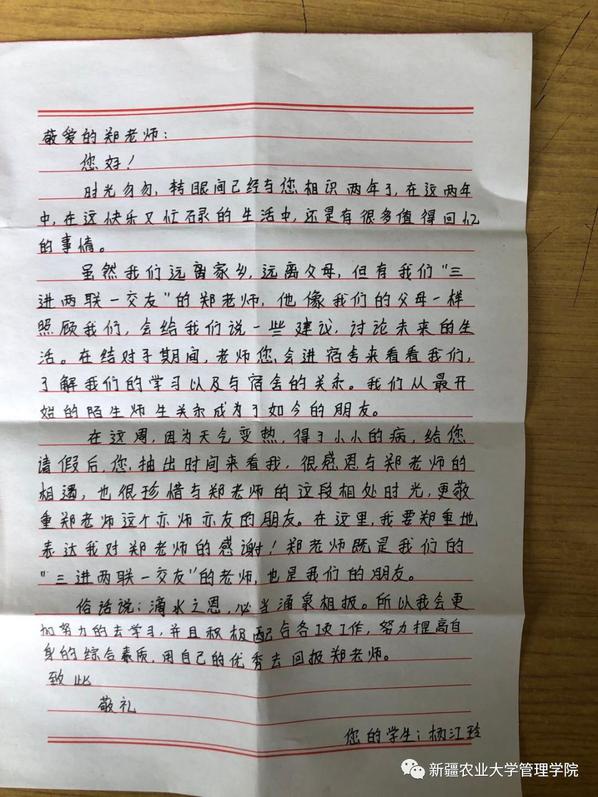 敬爱的郑老师：
您好！
时光匆匆，转眼间已经与您相识两年了，在这两年
中，在这快乐又忙碌的生活中，还是有很多值得回忆
的事情。
虽然我们远离家乡，远离父母，但有我们“三
进两联一交友”的郑老师，他像我们的父母一样
照顾我们，会给我们说一些建议，讨论未来的生
活。在结对子期间，老师您会进宿舍来看看我们，
了解我们的学习以及与宿舍的关系。我们从最开
始的陌生师生关系成为了如今的朋友。
在这周，因为天气变热，得了小小的病，给您
请假后，您抽出时间来看我，很感恩与郑老师的
相遇，也很珍惜与郑老师的这段相处时光，更敬
重郑老师这个亦师亦友的朋友。在这里，我要郑重地
表达我对郑老师的感谢！郑老师既是我们的
“三进两联一交友”的老师，也是我们的朋友。
俗话说：滴水之恩，必当涌泉相报。所以我会更
加努力的去学习，并且积极配合各项工作，努力提高自
身的综合素质，用自己的优秀去回报郑老师。
致此
敬礼
您的学生：杨江玲
新疆农业大学管理学院